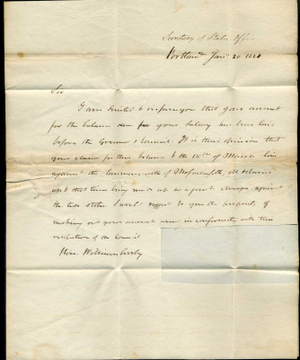 Secretary of State's Office
Portland Jany 20 1821
Sir
I am directed to inform you that your account
for the balance due for your salary has been laid
before the Governor & Council. It is their decision
that your claim for the balance to the 15th of March lies
against the Commonwealth of Massachusetts & Maine
and that
the two states. I would suggest to you the propriety of
making out your account anew in conformity with this
resolution of the Council
Hon. William Crosby